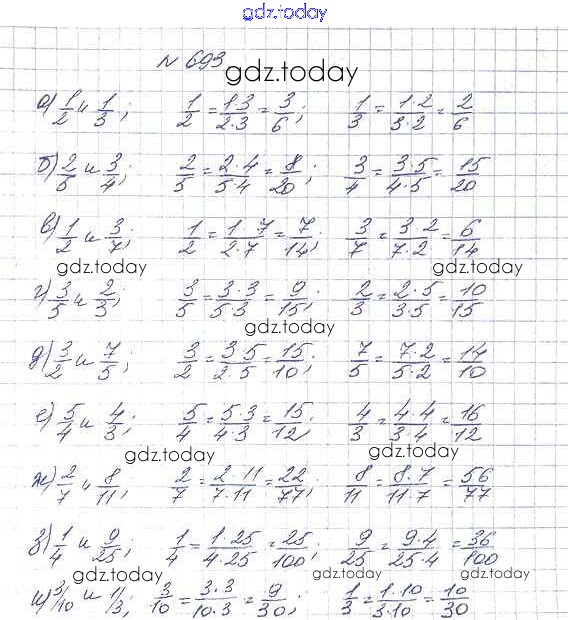 gdz.today
№ 693
gdz.today
а) 1/2 и 1/3; 1/2 = 1·3/2·3 = 3/6; 1/3 = 1·2/3·2 = 2/6
б) 2/5 и 3/4; 2/5 = 2·4/5·4 = 8/20; 3/4 = 3·5/4·5 = 15/20
в) 1/2 и 3/7; 1/2 = 1 7/2·7 = 7/14; 3/7 = 3·2/7·2 = 6/14
gdz.today gdz.today
г) 3/5 и 2/3; 3/5 = 3·3/5·3 = 9/15; 2/3 = 2·5/3·5 = 10/15
gdz.today
д) 3/2 и 7/5; 3/2 = 3·5/2·5 = 15/10; 7/5 = 7·2/5·2 = 14/10
е) 5/4 и 4/3; 5/4 = 5·3/4·3 = 15/12; 4/3 = 4·4/3·4 = 16/12
gdz.today gdz.today
ж) 2/7 и 8/11; 2/7 = 2·11/7·11 = 22/77; 8/11 = 8·7/11·7 = 56/77
з) 1/4 и 9/25; 1/4 = 1·25/4·25 = 25/100; 9/25 = 9·4/25·4 = 36/100
gdz.today gdz.today gdz.today
и) 3/10 и 1/3; 3/10 = 3·3/10·3 = 9/30; 1/3 = 1·10/3·10 = 10/30